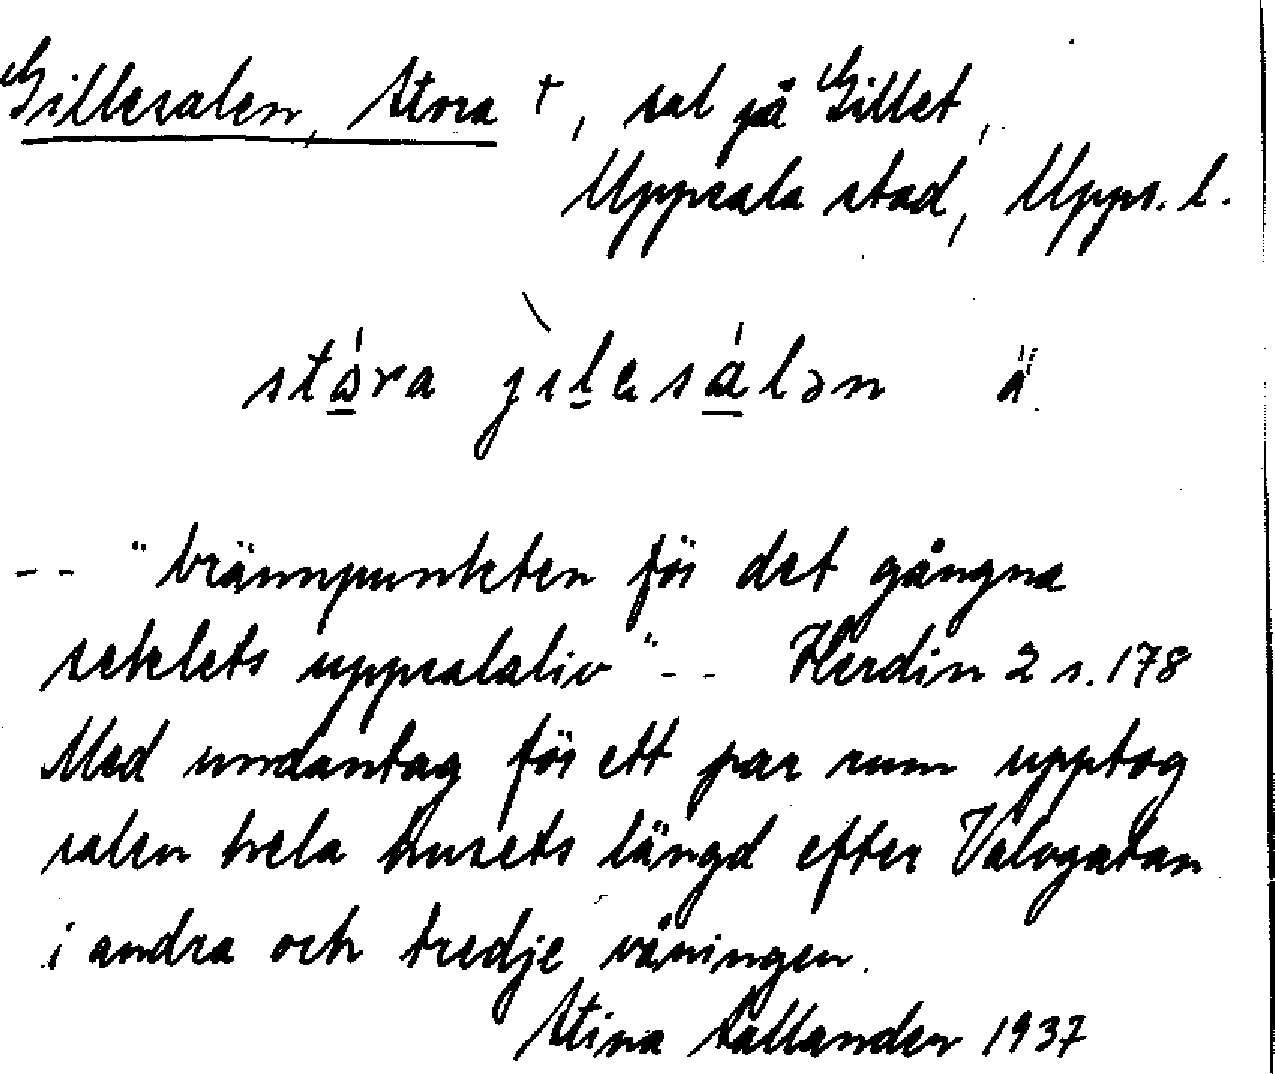 Gillesalen, Stora †, sal på Gillet,
Uppsala stad, Upps. l.
stora jılesalən ä
-- "brännpunkten för det gångna
seklets uppsalaliv" -- Herdin 2 s. 178
Med undantag för ett par rum upptog
salen hela husets längd efter Valvgatan
i andra och tredje våningen.
Stina Sallander 1937